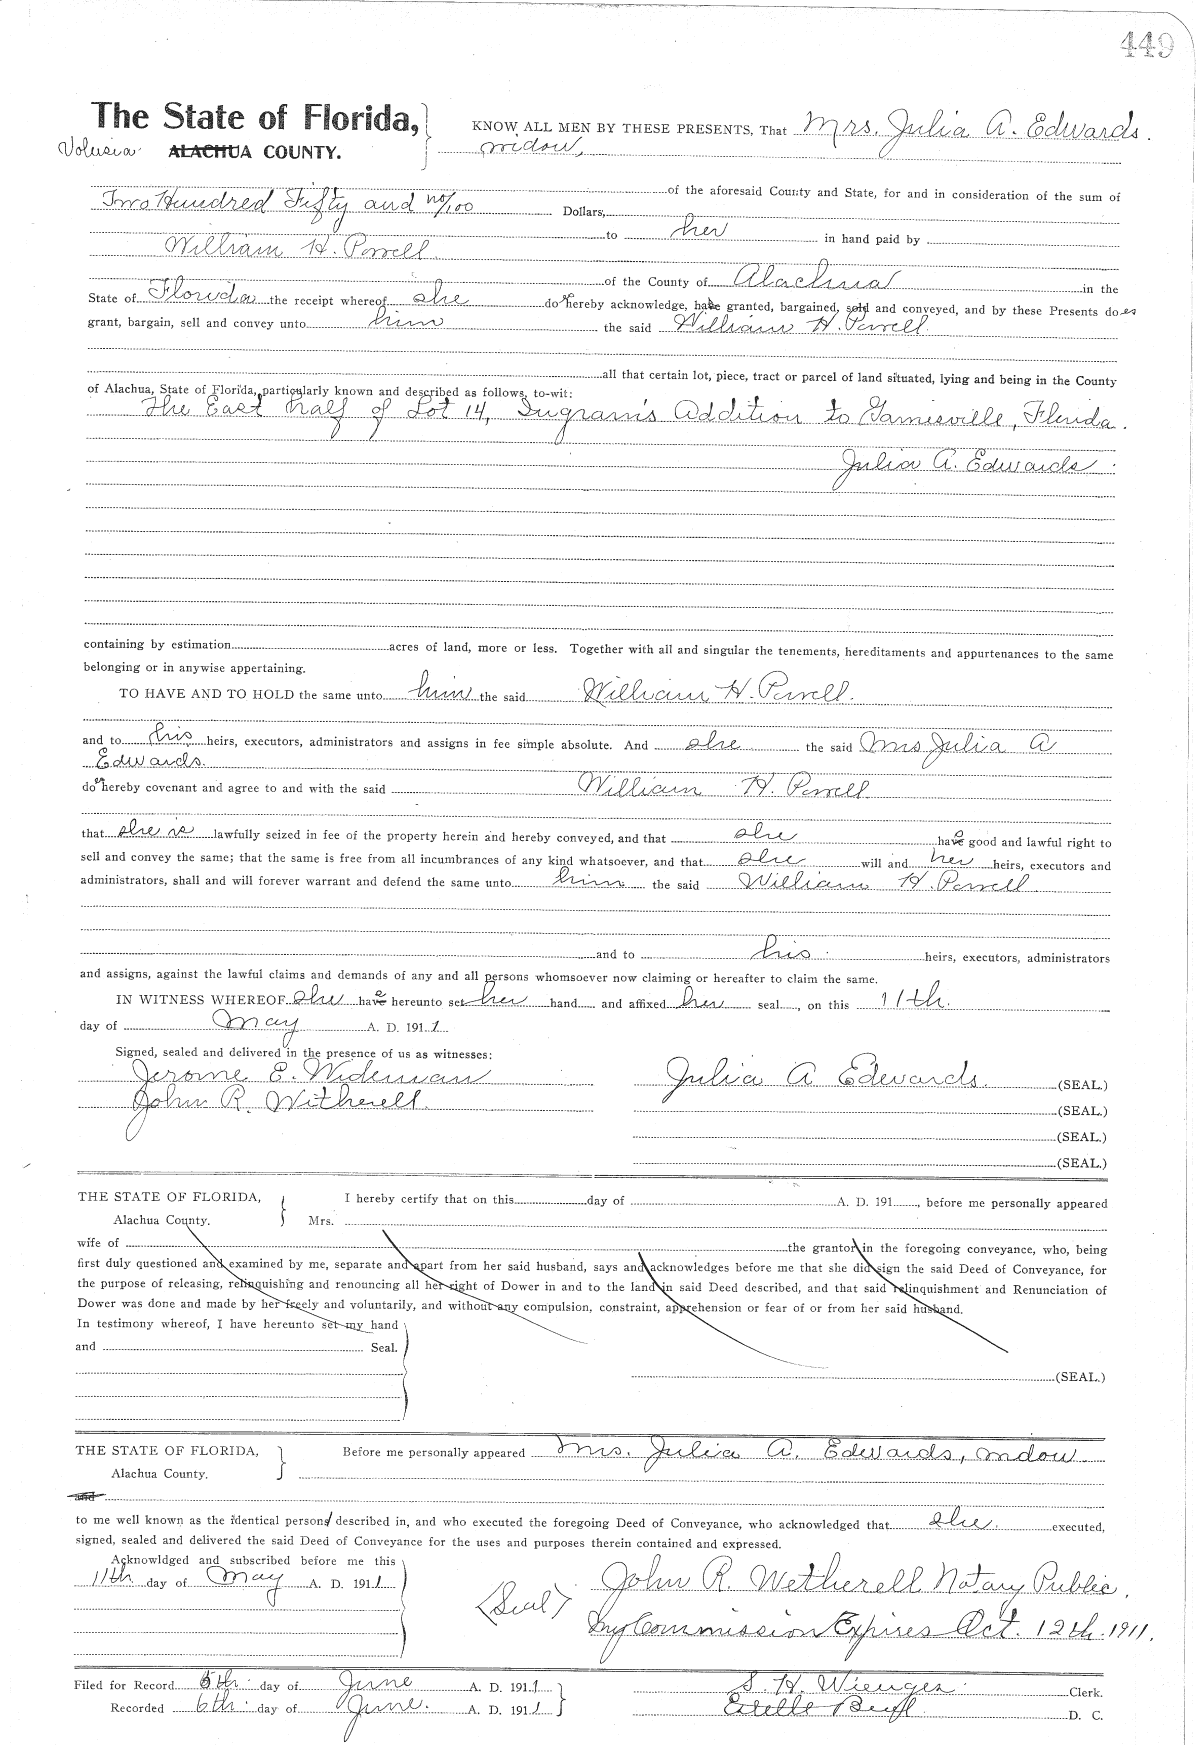 449
The State of Florida,
Volusia ALACHUA COUNTY.
KNOW ALL MEN BY THESE PRESENTS, That Mrs. Julia A. Edwards.
widow,
of the aforesaid County and State, for and in consideration of the sum of
Two Hundred Fifty and no/100 Dollars,
to her in hand paid by
William H. Powell
of the County of Alachua in the
State of Florida the receipt whereof she does hereby acknowledge, has granted, bargained, sold and conveyed, and by these Presents does
grant, bargain, sell and convey unto him the said William H. Powell
all that certain lot, piece, tract or parcel of land situated, lying and being in the County
of Alachua, State of Florida, particularly known and described as follows, to-wit:
The East half of Lot 14, Ingram's Addition to Gainesville, Florida.
Julia A. Edwards.
containing by estimation acres of land, more or less. Together with all and singular the tenements, hereditaments and appurtenances to the same
belonging or in anywise appertaining.
TO HAVE AND TO HOLD the same unto him the said William H. Powell.
and to his heirs, executors, administrators and assigns in fee simple absolute. And she the said Mrs Julia A
Edwards.
does hereby covenant and agree to and with the said William H. Powell
that she is lawfully seized in fee of the property herein and hereby conveyed, and that she has good and lawful right to
sell and convey the same; that the same is free from all incumbrances of any kind whatsoever, and that she will and her heirs, executors and
administrators, shall and will forever warrant and defend the same unto him the said William H. Powell
and to his heirs, executors, administrators
and assigns, against the lawful claims and demands of any and all persons whomsoever now claiming or hereafter to claim the same.
IN WITNESS WHEREOF she has hereunto set her hand and affixed her seal, on this 11th.
day of May A. D. 1911
Signed, sealed and delivered in the presence of us as witnesses:
Jerome E. Wideman
John R. Witherell.
Julia A Edwards. (SEAL.)
(SEAL.)
(SEAL.)
(SEAL.)
THE STATE OF FLORIDA,
Alachua County.
I hereby certify that on this day of A. D. 191 , before me personally appeared
Mrs.
wife of the grantor in the foregoing conveyance, who, being
first duly questioned and examined by me, separate and apart from her said husband, says and acknowledges before me that she did sign the said Deed of Conveyance, for
the purpose of releasing, relinquishing and renouncing all her right of Dower in and to the land in said Deed described, and that said relinquishment and Renunciation of
Dower was done and made by her freely and voluntarily, and without any compulsion, constraint, apprehension or fear of or from her said husband.
In testimony whereof, I have hereunto set my hand
and Seal.
(SEAL.)
THE STATE OF FLORIDA,
Alachua County.
Before me personally appeared Mrs. Julia A. Edwards, widow
and
to me well known as the identical person described in, and who executed the foregoing Deed of Conveyance, who acknowledged that she executed,
signed, sealed and delivered the said Deed of Conveyance for the uses and purposes therein contained and expressed.
Acknowldged and subscribed before me this
11th day of May A. D. 1911
(Seal)
John R. Wetherell Notary Public.
My Commission Expires Oct. 12th. 1911.
Filed for Record 6th. day of June A. D. 1911
Recorded 6th. day of June. A. D. 1911
S. H. Wienges Clerk.
Estelle D. C.